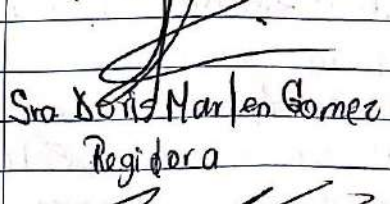 Sra Doris Marlen Gomez
Regidora